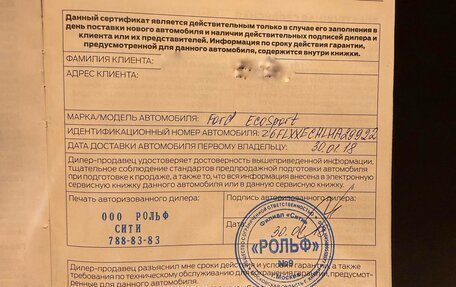 Данный сертификат является действительным только в случае его заполнения в
день поставки нового автомобиля и наличии действительных подписей дилера и
клиента или их представителей. Информация по сроку действия гарантии,
предусмотренной для данного автомобиля, содержится внутри книжки.
ФАМИЛИЯ КЛИЕНТА:
АДРЕС КЛИЕНТА:
МАРКА/МОДЕЛЬ АВТОМОБИЛЯ: Ford EcoSport
ИДЕНТИФИКАЦИОННЫЙ НОМЕР АВТОМОБИЛЯ: Z6FLXXECHLHA29922
ДАТА ДОСТАВКИ АВТОМОБИЛЯ ПЕРВОМУ ВЛАДЕЛЬЦУ: 30.01.18
Дилер-продавец удостоверяет достоверность вышеприведенной информации,
тщательное соблюдение стандартов предпродажной подготовки автомобиля
при подготовке к продаже, а также то, что вся информация внесена в электронную
сервисную книжку данного автомобиля или в данную сервисную книжку.
Печать авторизованного дилера:
Подпись авторизованного дилера:
ООО РОЛЬФ
СИТИ
788-83-83
Дата: 30.01
Филиал «Сити»
«РОЛЬФ»
№9
Москва
Дилер-продавец разъяснил мне сроки действия и условия гарантии, а также
требования по техническому обслуживанию для сохранения гарантии, предусмот-
ренные для данного